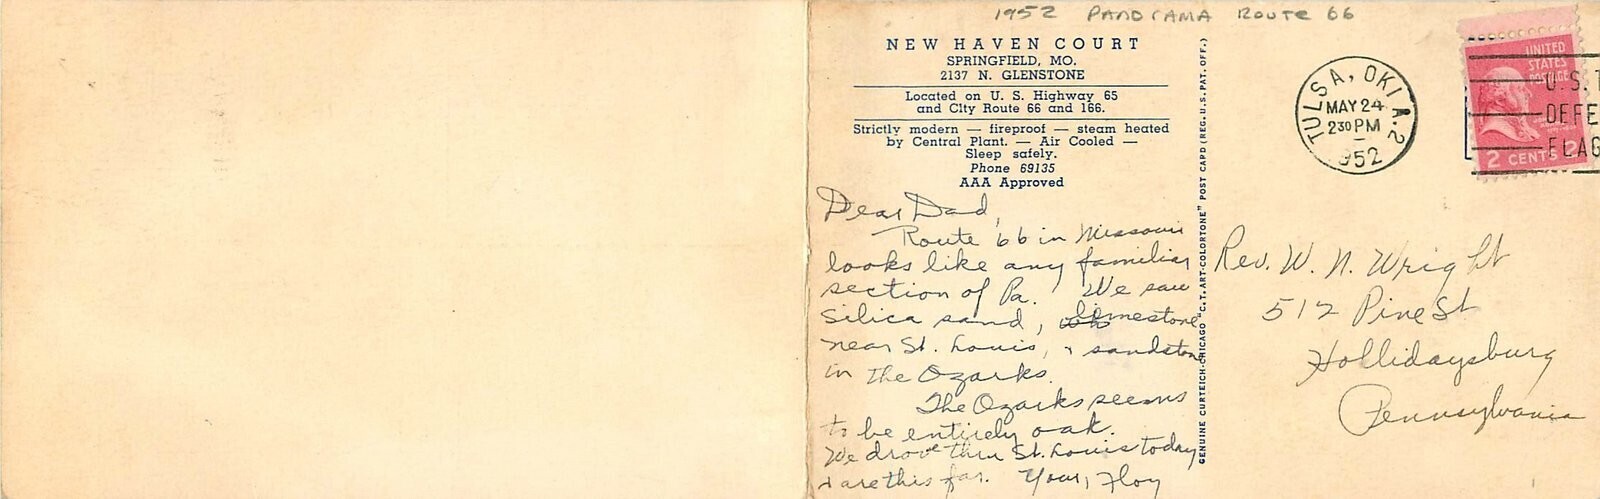 1952 PANORAMA ROUTE 66
NEW HAVEN COURT
SPRINGFIELD, MO.
2137 N. GLENSTONE
Located on U. S. Highway 65
and City Route 66 and 166.
Strictly modern — fireproof — steam heated
by Central Plant. — Air Cooled —
Sleep safely.
Phone 69135
AAA Approved
Dear Dad,
Route 66 in Missouri
looks like any familiar
section of Pa. We saw
silica sand, limestone
near St. Louis, & sandstone
in the Ozarks.
The Ozarks seems
to be entirely oak.
We drove thru St. Louis today
& are this far. Your,
GENUINE CURTEICH-CHICAGO "C.T. ART-COLORTONE" POST CARD (REG. U.S. PAT. OFF.)
TULSA, OKLA. 2
MAY 24
2 30 PM
1952
UNITED
STATES
POSTAGE
2 CENTS 2
U.S.
DEFE
FLAG
Rev. W. N. Wright
512 Pine St
Hollidaysburg
Pennsylvania